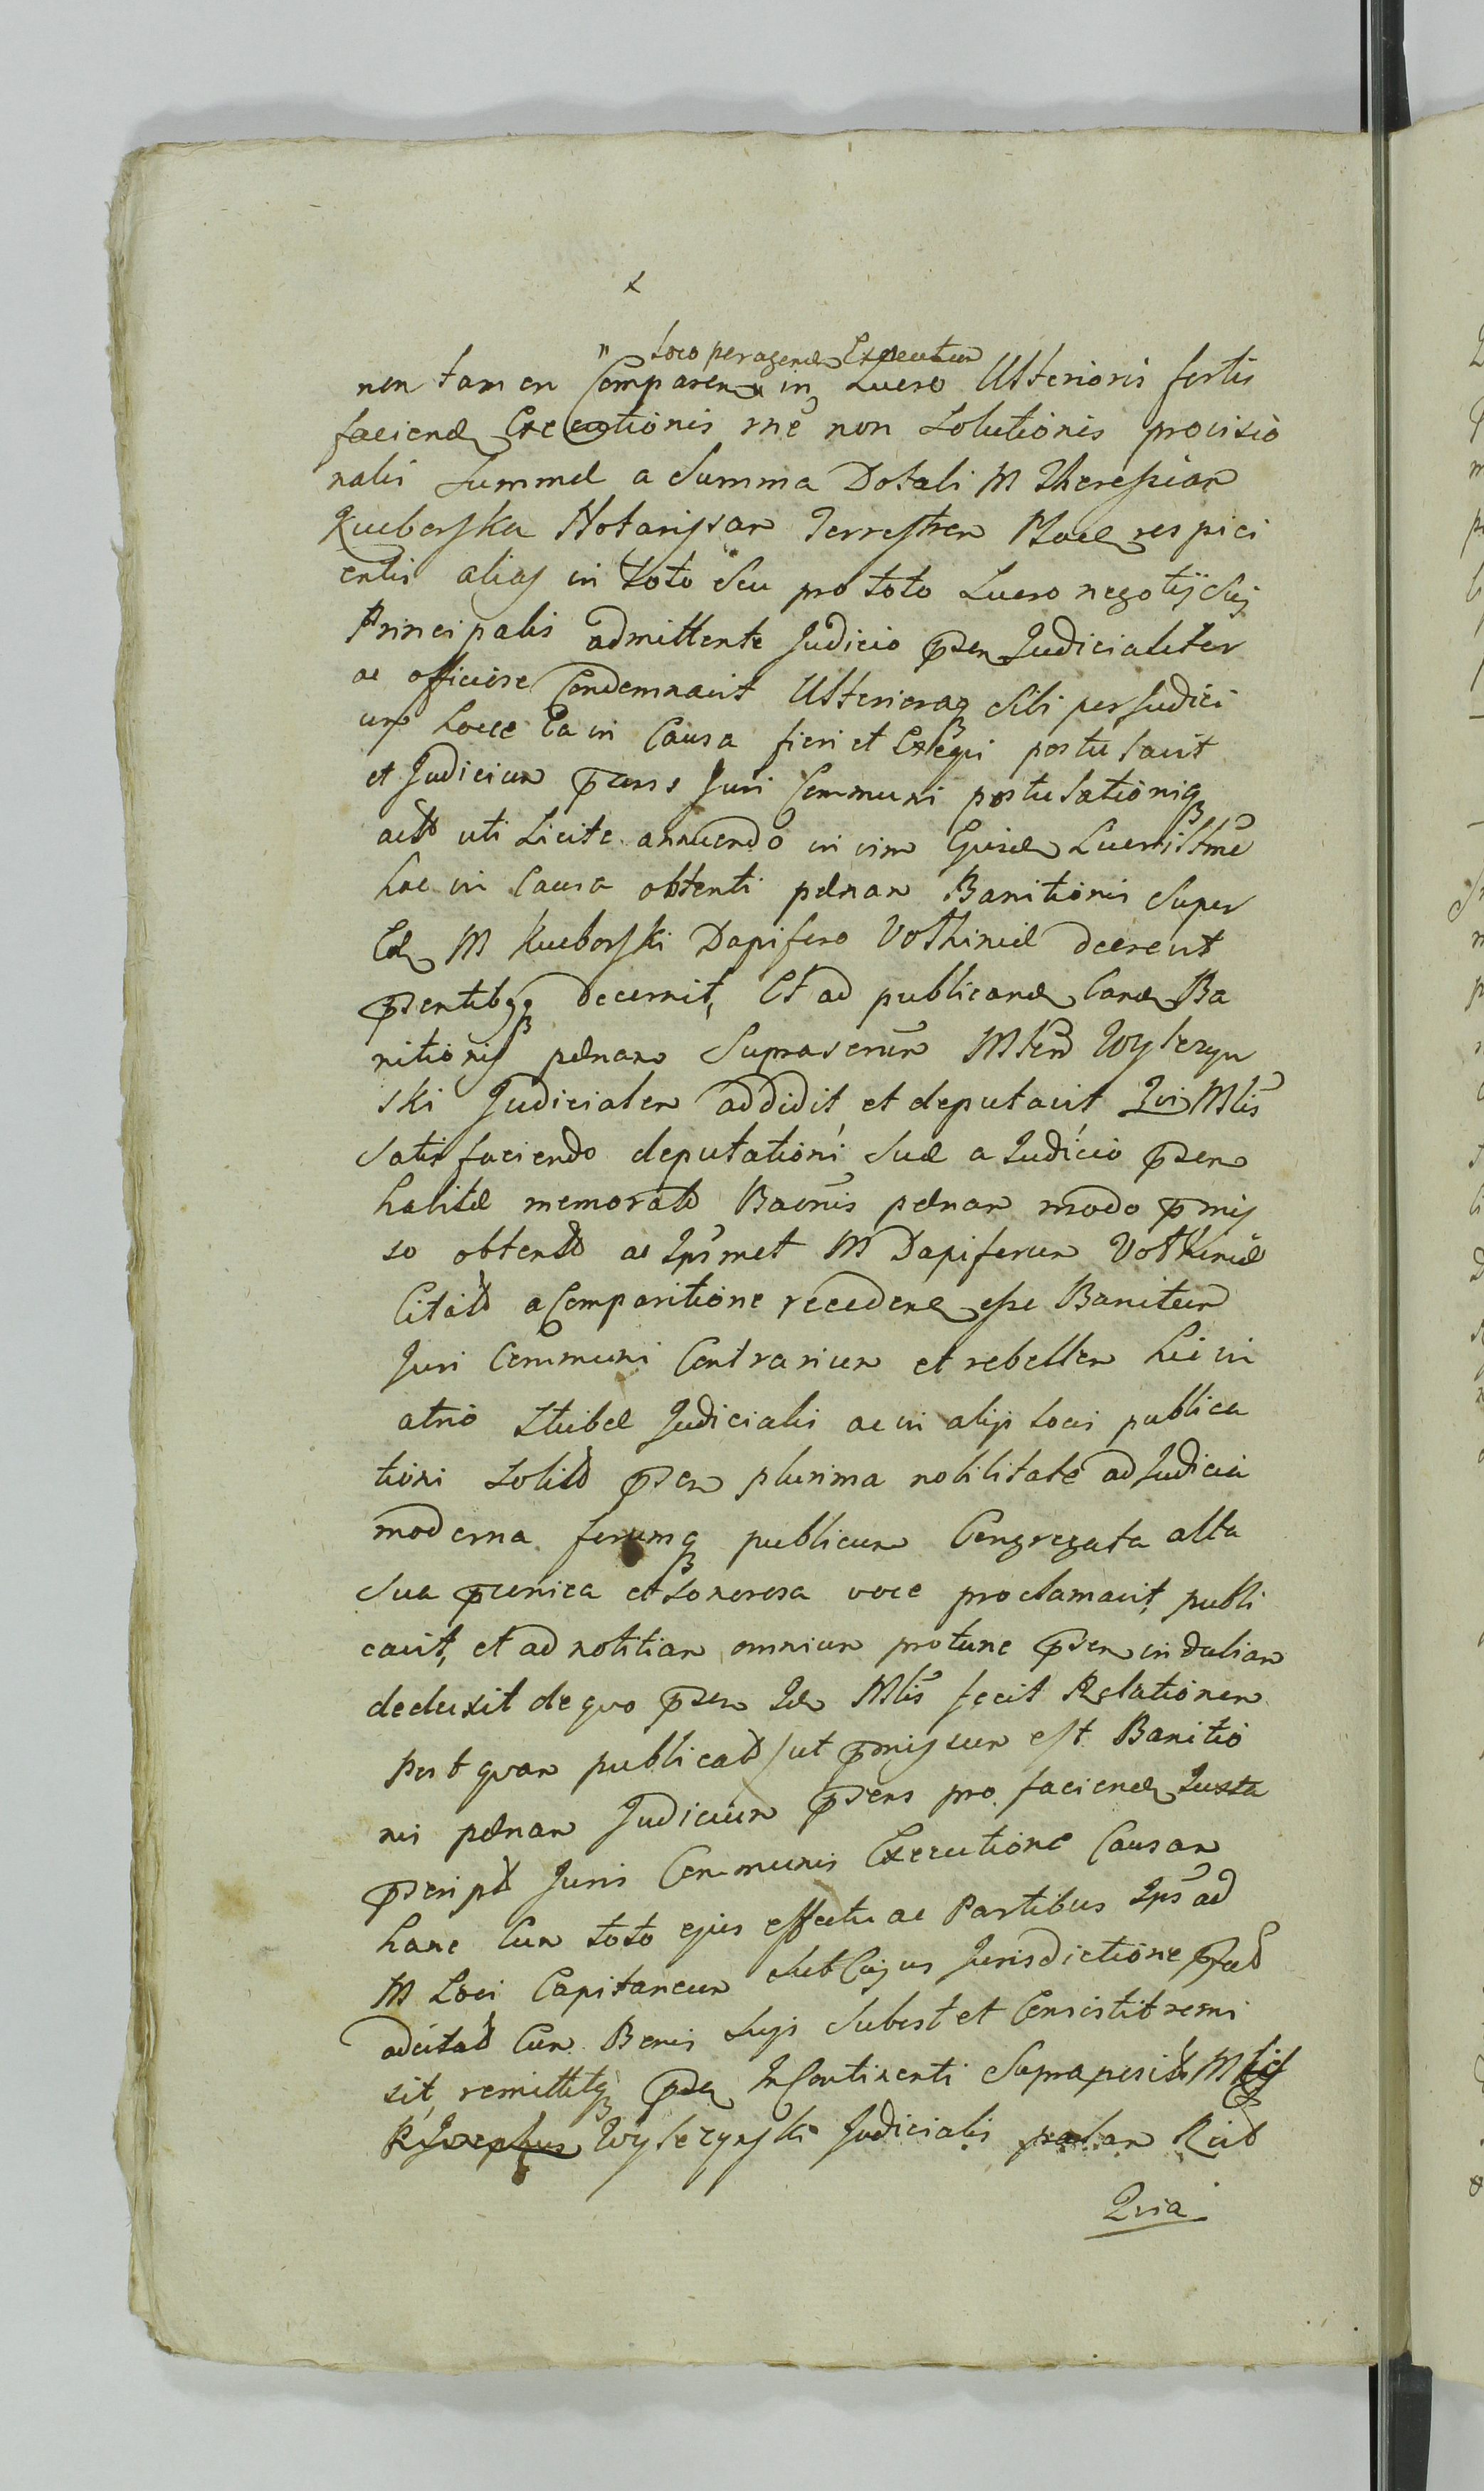 x
" Loco peragendæ Executionis
non tamen Comparen in Lucro Ulterioris fortis
faciend Executionis rne non Solutionis provisio
nalis Summæ a Summa Dotali M Theressiam
Kueborska Notarissam Terrestrem respici
entis alias in toto seu pro toto Lucro negotij Sui
Principalis admittente Judicio psen Judicialiter
ac officiose Condemnavit Ulterioraq Sibi per Judici
um hocce Ea in Causa fieri et Exequi postulavit
et Judicium psens Juri Communi postulationiq
actt uti Licite annuendo in vim Lucri Ultme
hac in Causa obtenti pænam Banitionis Super
M Kueborski Dapifero decrevit
psentibusq decernit, Et ad publicand eand Ba
nitionis pænam Suprascrum Mlem Wylezyn
ski Judicialem addidit et deputavit Qui Mlis
Satisfaciendo deputationi Suæ a Judicio psen
habitæ memoratt Baonis pænam modo pmis
so obtentt ac Ipsmet M Dapiferum
Citatt a Comparitione recedene esse Banitum
Juri Communi Contrarium et rebellem hic in
atrio Stubæ Judicialis ac in alijs locis publica
tioni Solitt psen plurima nobilitate ad Judicia
moderna forumq publicum Congregata alta
Sua et Sonorosa voce proclamavit, publi
cavit, et ad notitiam omnium protunc psen indubiam
deduxit de quo psen Id Mlis fecit Relationem
Post quam publicatt ut pmissum est Banitio
nis pænam Judicium psens pro faciend Juxta
pscriptt Juris Communis Executione Causam
hanc Cum toto ejus effectu ac Partibus Ips ad
M Loci Capitaneum Sub Cujus Jurisdictione
adcitatt Cum Bonis Suis Subest et Consistit remi
sit, remittitq In Continenti Supraposit Mlis
R Josephus Wylezynski Judicialis palam Rcit
Quia